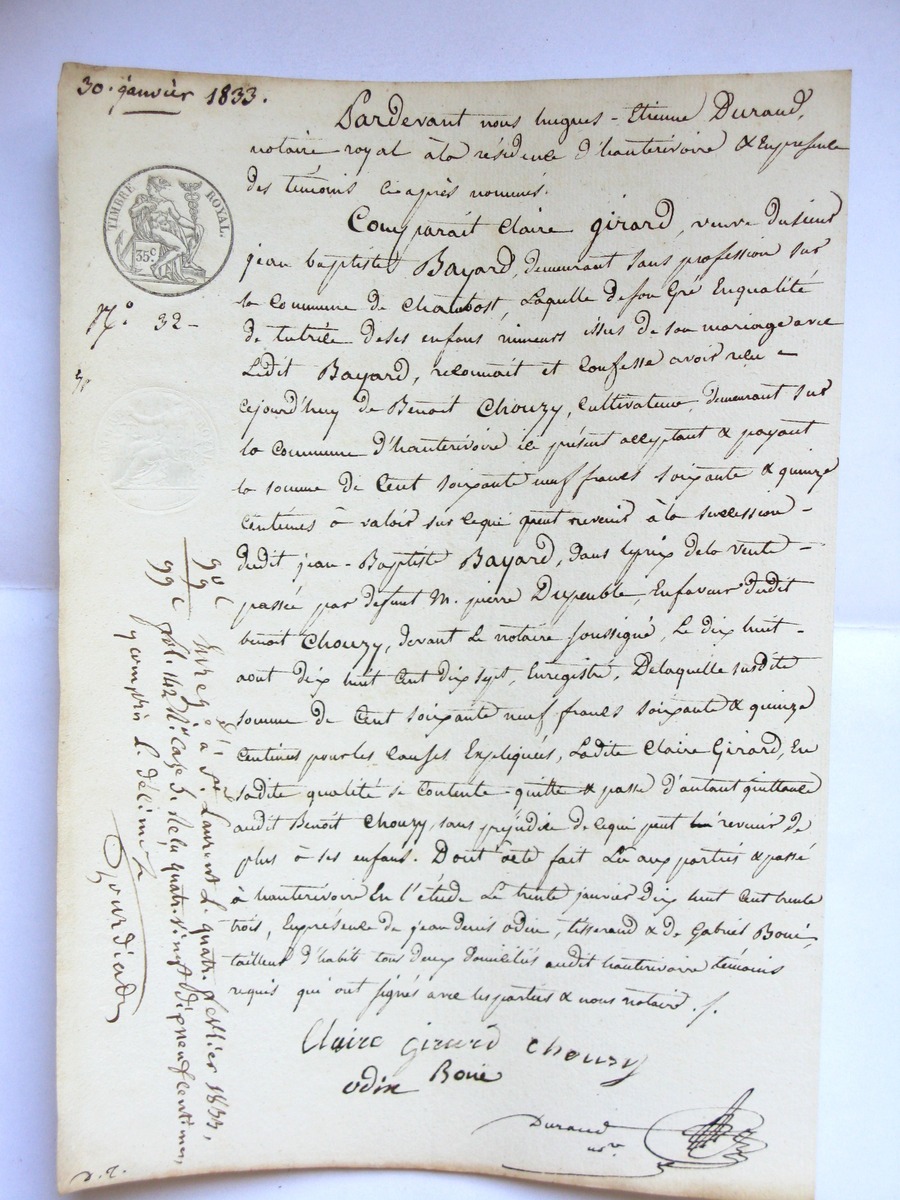 30. janvier 1833.
Pardevant nous hugues-Etienne Durand,
notaire royal à la résidence d'hauterivoire & En présence
des témoins ci après nommés.
Comparait Claire Girard, veuve du sieur
jean baptiste Bayard, demeurant sans profession sur
la Commune de Chambost, Laquelle de son Gré En qualité
de tutrice de ses enfans mineurs issus de son mariage avec
Ledit Bayard, reconnait et Confesse avoir reçu
Cejourd'huy de Benoit Chouzy, Cultivateur, demeurant sur
la Commune d'hauterivoire ici présent acceptant & payant
la somme de Cent soixante neuf francs soixante & quinze
Centimes à valoir sur ce qui peut revenir à la succession
dudit jean-Baptiste Bayard, dans le prix de la vente
passée par défunt M. pierre Dupeuble, En faveur dudit
benoit Chouzy, devant Le notaire soussigné, Le dix huit
aout dix huit Cent dix sept, Enregistré, De laquelle susdite
somme de Cent soixante neuf francs soixante & quinze
Centimes pour les Causes Expliquées, Ladite Claire Girard, En
sadite qualité se Contente quitte & passe d'autant quittance
audit Benoit Chouzy, sans préjudice de ce qui peut revenir de
plus à ses enfans. Dont acte fait Lu aux parties & passé
à hauterivoire En l'étude Le trente janvier dix huit Cent trente
trois, En présence de jean denis Odin, tisserand & de Gabriel Boué,
tailleur d'habits tous deux domiciliés audit hauterivoire témoins
requis qui ont signés avec les parties & nous notaire ./.
Claire Girard Chouzy
odin Boué
Durand
nre
TIMBRE ROYAL.
35 c
N.º 32 -
90 c
9
99 c
Enregé à St Laurent L. quatre février 1833,
fol. 142 Rº Case 5. Reçu quatre vingt dix neuf centimes,
y compris L. décime